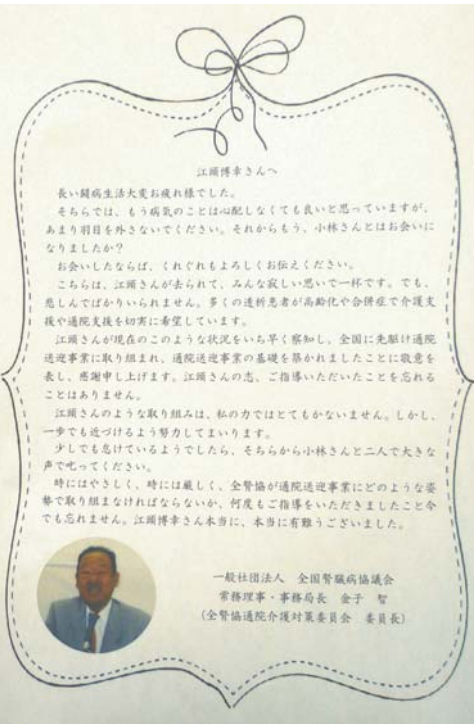 江頭博幸さんへ
長い闘病生活大変お疲れ様でした。
そちらでは、もう病気のことは心配しなくても良いと思っていますが、
あまり羽目を外さないでください。それからもう、小林さんとはお会いに
なりましたか？
お会いしたならば、くれぐれもよろしくお伝えください。
こちらは、江頭さんが去られて、みんな寂しい思いで一杯です。でも、
悲しんでばかりいられません。多くの透析患者が高齢化や合併症で介護支
援や通院支援を切実に希望しています。
江頭さんが現在のこのような状況をいち早く察知し、全国に先駆け通院
送迎事業に取り組まれ、通院送迎事業の基礎を築かれましたことに敬意を
表し、感謝申し上げます。江頭さんの志、ご指導いただいたことを忘れる
ことはありません。
江頭さんのような取り組みは、私の力ではとてもかないません。しかし、
一歩でも近づけるよう努力してまいります。
少しでも怠けているようでしたら、そちらから小林さんと二人で大きな
声で叱ってください。
時にはやさしく、時には厳しく、全腎協が通院送迎事業にどのような姿
勢で取り組まなければならないか、何度もご指導をいただきましたこと今
でも忘れません。江頭博幸さん本当に、本当に有難うございました。
一般社団法人　全国腎臓病協議会
常務理事・事務局長　金子　智
（全腎協通院介護対策委員会　委員長）